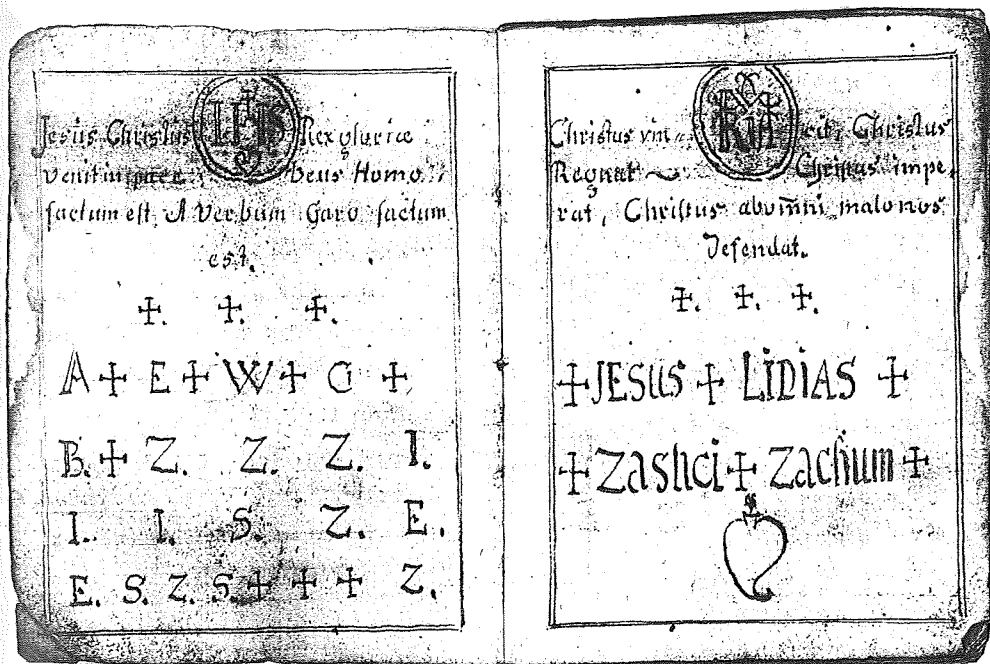 Jesus Christus IHS Rex gloriæ
venit in pace Deus Homo
factum est, & Verbum Caro factum
est.
+. +. +.
A + E + W + G +
B. + Z. Z. Z. I.
I. I. S. Z. E.
E. S. Z. S. + + + Z.
Christus vin cit, Christus
Regnat Christus impe,
rat, Christus ab om̄ni malo nos
Defendat.
+. +. +.
+ JESUS + LIDIAS +
+ Zashci + Zachum +